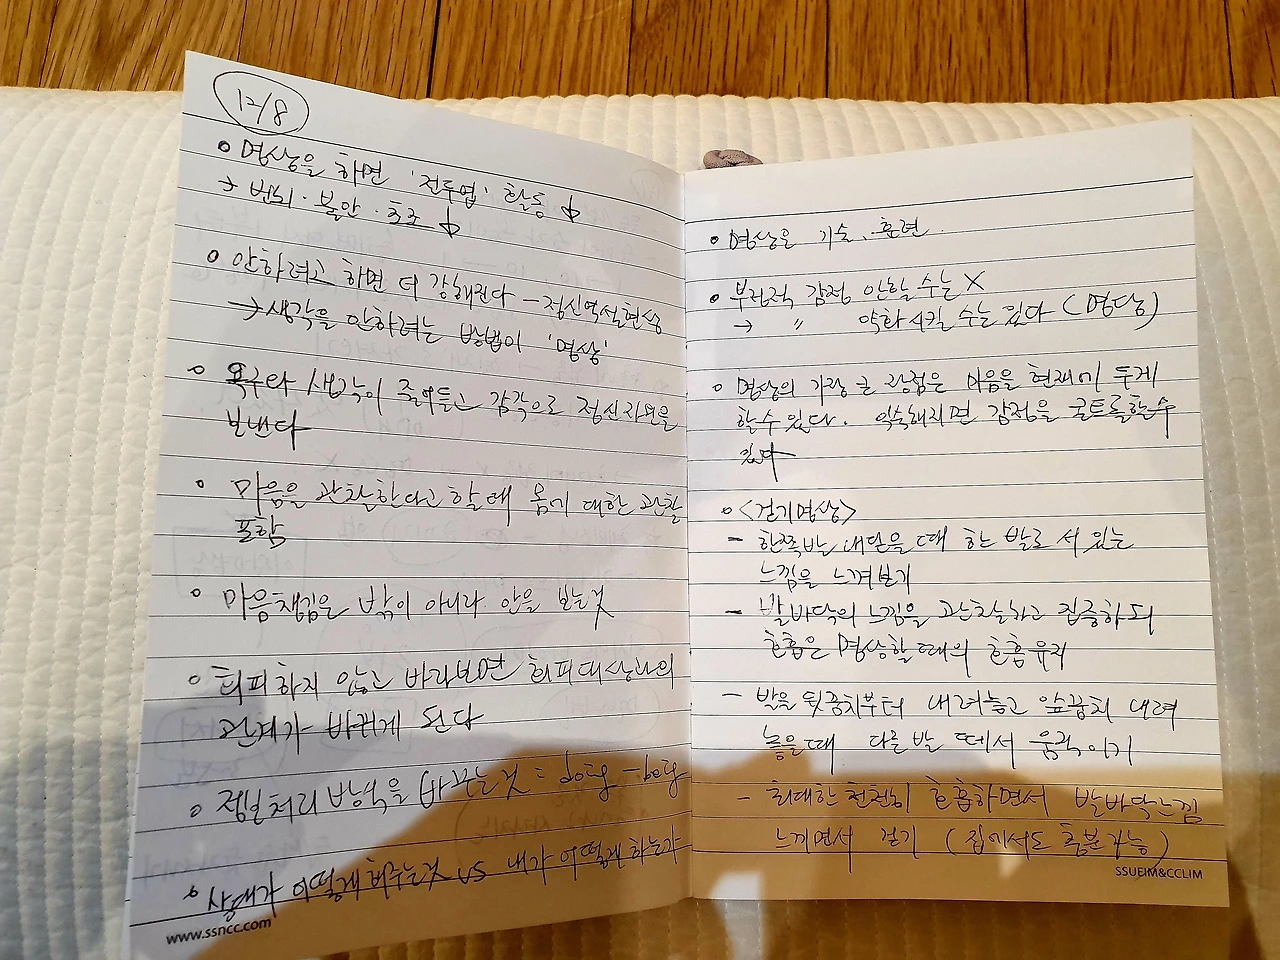 12/8
• 명상을 하면 '전두엽' 활동 ↓
→ 번뇌·불안·초조 ↓
• 안하려고 하면 더 강해진다 - 정신역설현상
→ 생각을 안하려는 방법이 '명상'
• 욕구와 생각이 줄어들고 감각으로 정신자원을
보낸다
• 마음을 관찰한다고 할 때 몸에 대한 관찰
포함
• 마음챙김은 밖이 아니라 안을 보는 것
• 회피하지 않고 바라보면 회피대상과의
관계가 바뀌게 된다
• 정보처리 방식을 바꾸는 것 = doing → being
• 상대가 어떻게 해주는것 vs 내가 어떻게 하는가
www.ssncc.com
• 명상은 기술, 훈련
• 부정적 감정 안할 수는 X
→ 〃 약화시킬 수는 있다 (명상)
• 명상의 가장 큰 장점은 마음을 현재에 두게
할 수 있다. 익숙해지면 감정을 컨트롤할 수
있다
• <걷기명상>
- 한쪽발 내딛을 때 한 발로 서 있는
느낌을 느껴보기
- 발바닥의 느낌을 관찰하고 집중하되
호흡은 명상할 때의 호흡 유지
- 발을 뒷꿈치부터 내려놓고 앞꿈치 내려
놓을 때 다른 발 떼서 움직이기
- 최대한 천천히 호흡하면서 발바닥 느낌
느끼면서 걷기 (집에서도 충분 가능)
SSUEIM&CCLIM